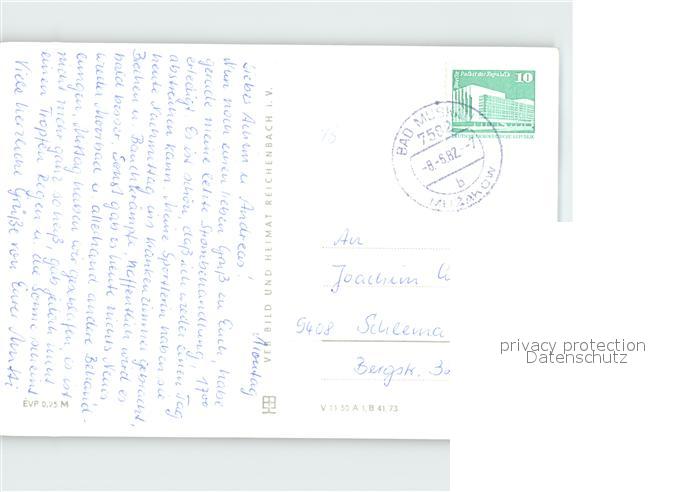 Montag
Liebes Achim u. Andreas!
Nun noch einen lieben Gruß an Euch, habe
gerade meine letzte Strombehandlung, 1700
erledigt. Es ist schön, daß ich wieder einen Tag
abstreichen kann. Meine Sportlerin haben sie
heute Nachmittag ins Krankenzimmer gebracht,
Brechen u. Bauchkrämpfe, hoffentlich wird es
bald besser. Sonst gab es heute nichts Neues,
wieder Moorbad u. allerhand andere Behand-
lungen, Mittag haben wir geschlafen, es ist
nicht mehr ganz so heiß, gab jedoch nicht
einen Tropfen Regen u. die Sonne scheint
Viele herzliche Grüße von Eurer Mutti
EVP 0,95 M
VEB BILD UND HEIMAT REICHENBACH i. V.
V 11 50 A 1, B 41/73
Palast der Republik
10
DEUTSCHE DEMOKRATISCHE REPUBLIK
BAD MUSKAU
-8.-6.82.-7
b
MUŽAKOW
An
Joachim
9408 Schlema
Bergstr.
privacy protection
Datenschutz